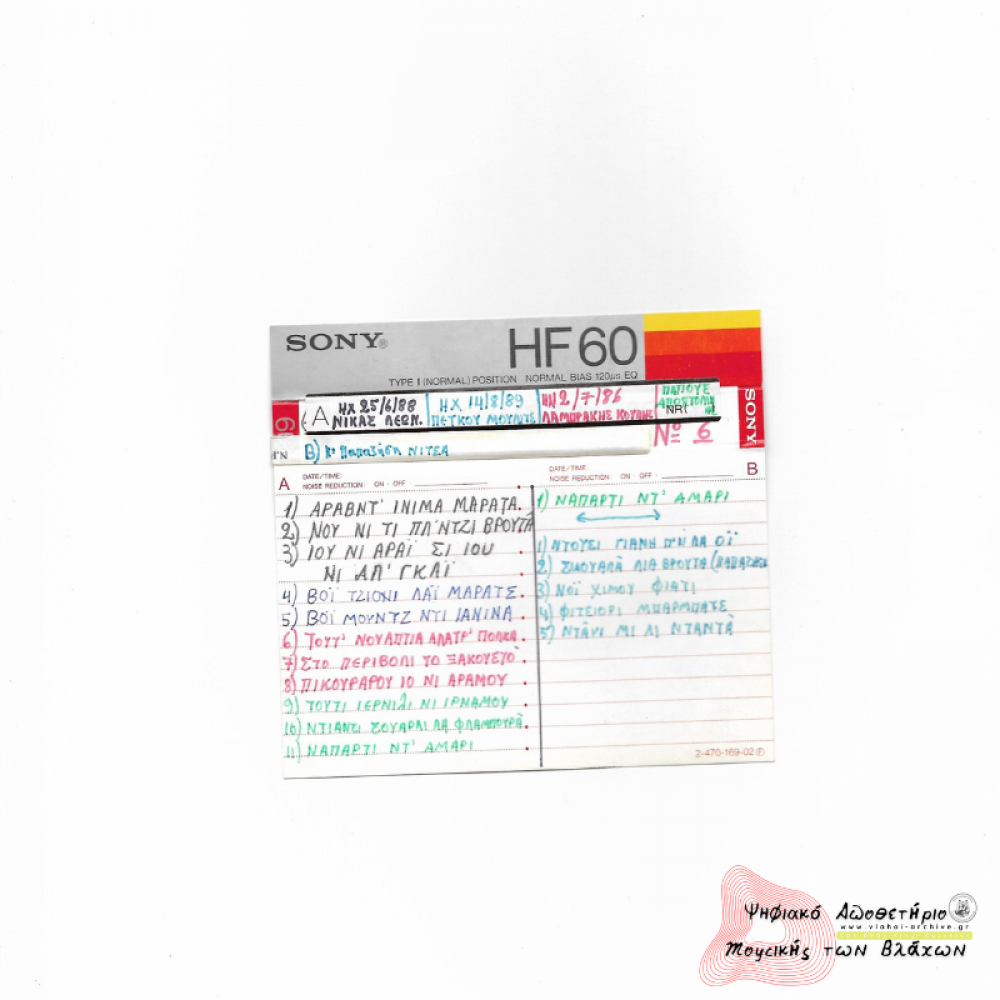 SONY®
HF 60
TYPE I (NORMAL) POSITION NORMAL BIAS 120µs EQ
A ΗΧ 25/6/88 ΗΧ 14/8/89 ΗΧ 2/7/86 ΠΑΠΠΟΥΣ
ΝΙΚΑΣ ΛΕΩΝ. ΠΕΤΚΟΥ ΛΑΜΠΡΑΚΗΣ ΑΠΟΣΤΟΛΗ
NR
SONY
Νº 6
Β) Κα Παπαζήση ΝΙΤΣΑ
A DATE/TIME:
NOISE REDUCTION: ON · OFF ·
DATE/TIME: B
NOISE REDUCTION: ON · OFF ·
1) ΑΡΑΒΝΤ' ΙΝΙΜΑ ΜΑΡΑΤΑ.
2) ΝΟΥ ΝΙ ΤΙ ΠΛ'ΝΤΖΙ ΒΡΟΥΤΑ
3) ΙΟΥ ΝΙ ΑΡΑΪ ΣΙ ΙΟΥ
ΝΙ ΑΠ' ΓΚΑΪ
4) ΒΟΪ ΤΖΙΟΝΙ ΛΑΪ ΜΑΡΑΤΕ.
5) ΒΟΪ ΜΟΥΝΤΖ ΝΤΙ ΙΑΝΙΝΑ.
6) ΤΟΥΤ' ΝΟΥΑΠΤΙΑ ΑΛΑΤΡ' ΠΟΛΚΑ.
7) ΣΤΟ ΠΕΡΙΒΟΛΙ ΤΟ ΞΑΚΟΥΣΤΟ
8) ΠΙΚΟΥΡΑΡΟΥ ΙΟ ΝΙ ΑΡΑΜΟΥ
9) ΤΟΥΤΙ ΙΕΡΝΙΛΙ ΝΙ ΙΡΝΑΜΟΥ
10) ΝΤΙΑΝΤΙ ΖΟΥΑΡΛΙ ΛΑ ΦΛΑΜΠΟΥΡΑ
11) ΝΑΠΑΡΤΙ ΝΤ' ΑΜΑΡΙ
1) ΝΑΠΑΡΤΙ ΝΤ' ΑΜΑΡΙ
1) ΝΤΟΥΣΙ ΓΙΑΝΗ ΛΑ ΟΪ
2) ΣΚΟΥΑΛΑ ΛΙΑ ΒΡΟΥΤΑ
3) ΝΟΪ ΧΙΜΟΥ ΦΙΑΤΙ
4) ΦΙΤΣΙΟΡΙ ΜΠΑΡΜΠΑΤΣ
5) ΝΤΑΝΙ ΜΙ ΛΙ ΝΤΑΝΤΑ
2-470-169-02
Ψηφιακό Αποθετήριο
www.vlahoi-archive.gr
Μουσικής των Βλάχων